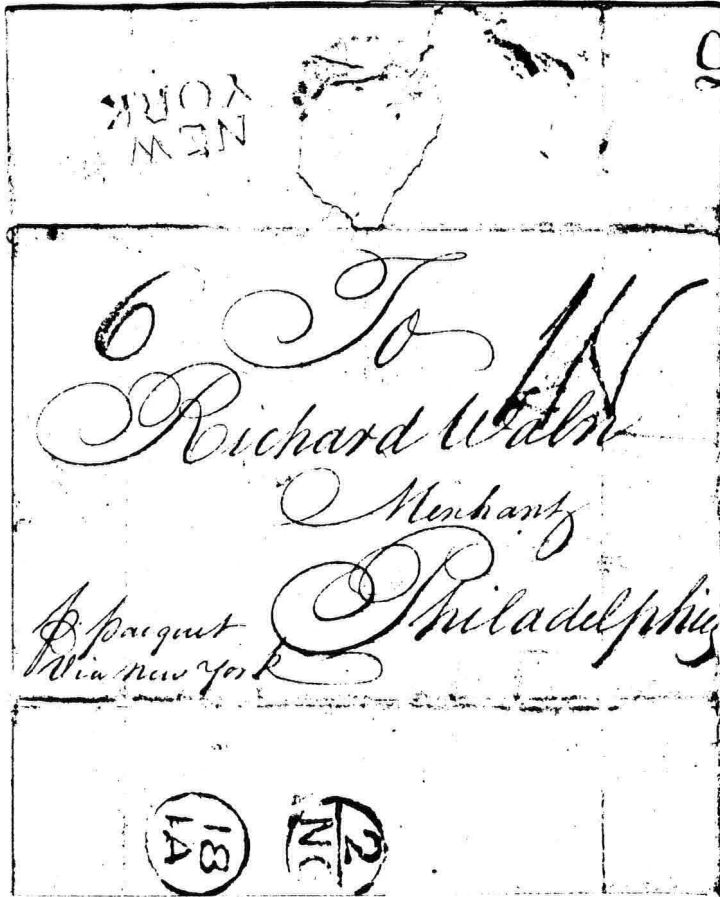 NEW
YORK
6 To
Richard Waln
Merchant
Philadelphia
p. pacquet
Via New York
18
IA
2